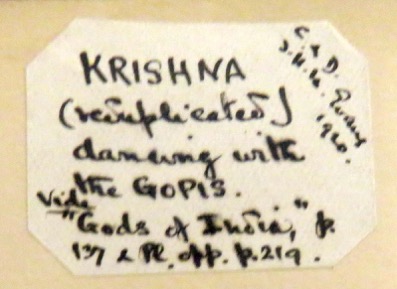 KRISHNA
(reduplicated)
dancing with
the GOPIS.
Vide "Gods of India," p.
137 & Pl. opp. p. 219.
C & D.
Evans
1920.